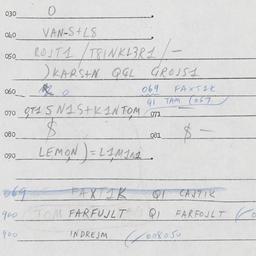 030 O
040 VAN-S+LS
050 ROJT1 /TRINKL3R1/-
)KARS+N QGL GROJS1
060 O 069 FAXT1K
Q1 TAM (069
070 QT1SN1S+K1NTOM, 071
080 $ 081 $ -
090 LEMON,)=L1M1N1
069 FAXT1K Q1 CAJT1K
900 TOM FARFUJLT Q1 FARFOJLT
900 INDREJM (008050